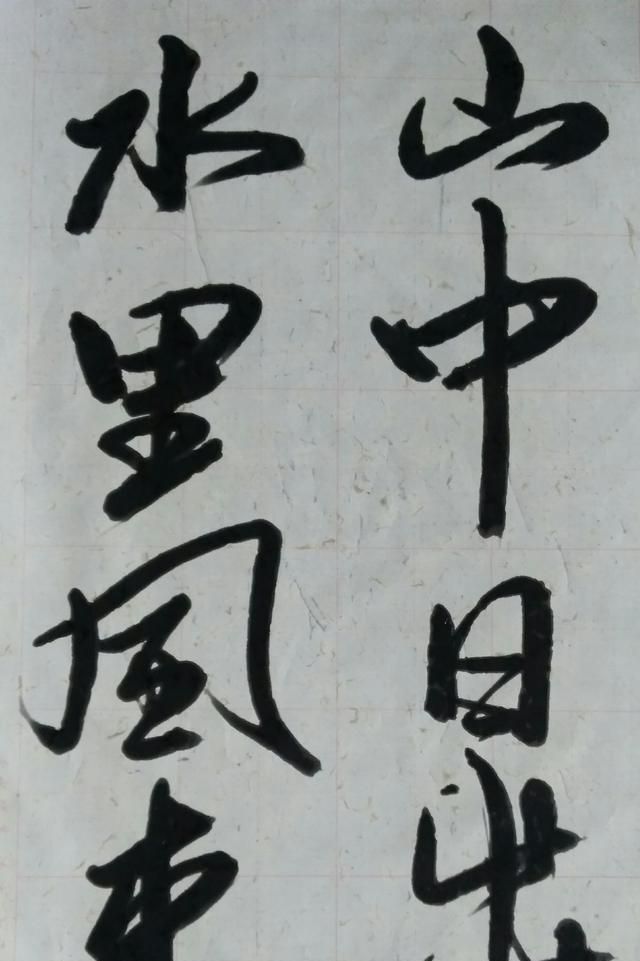 山中日
水里風